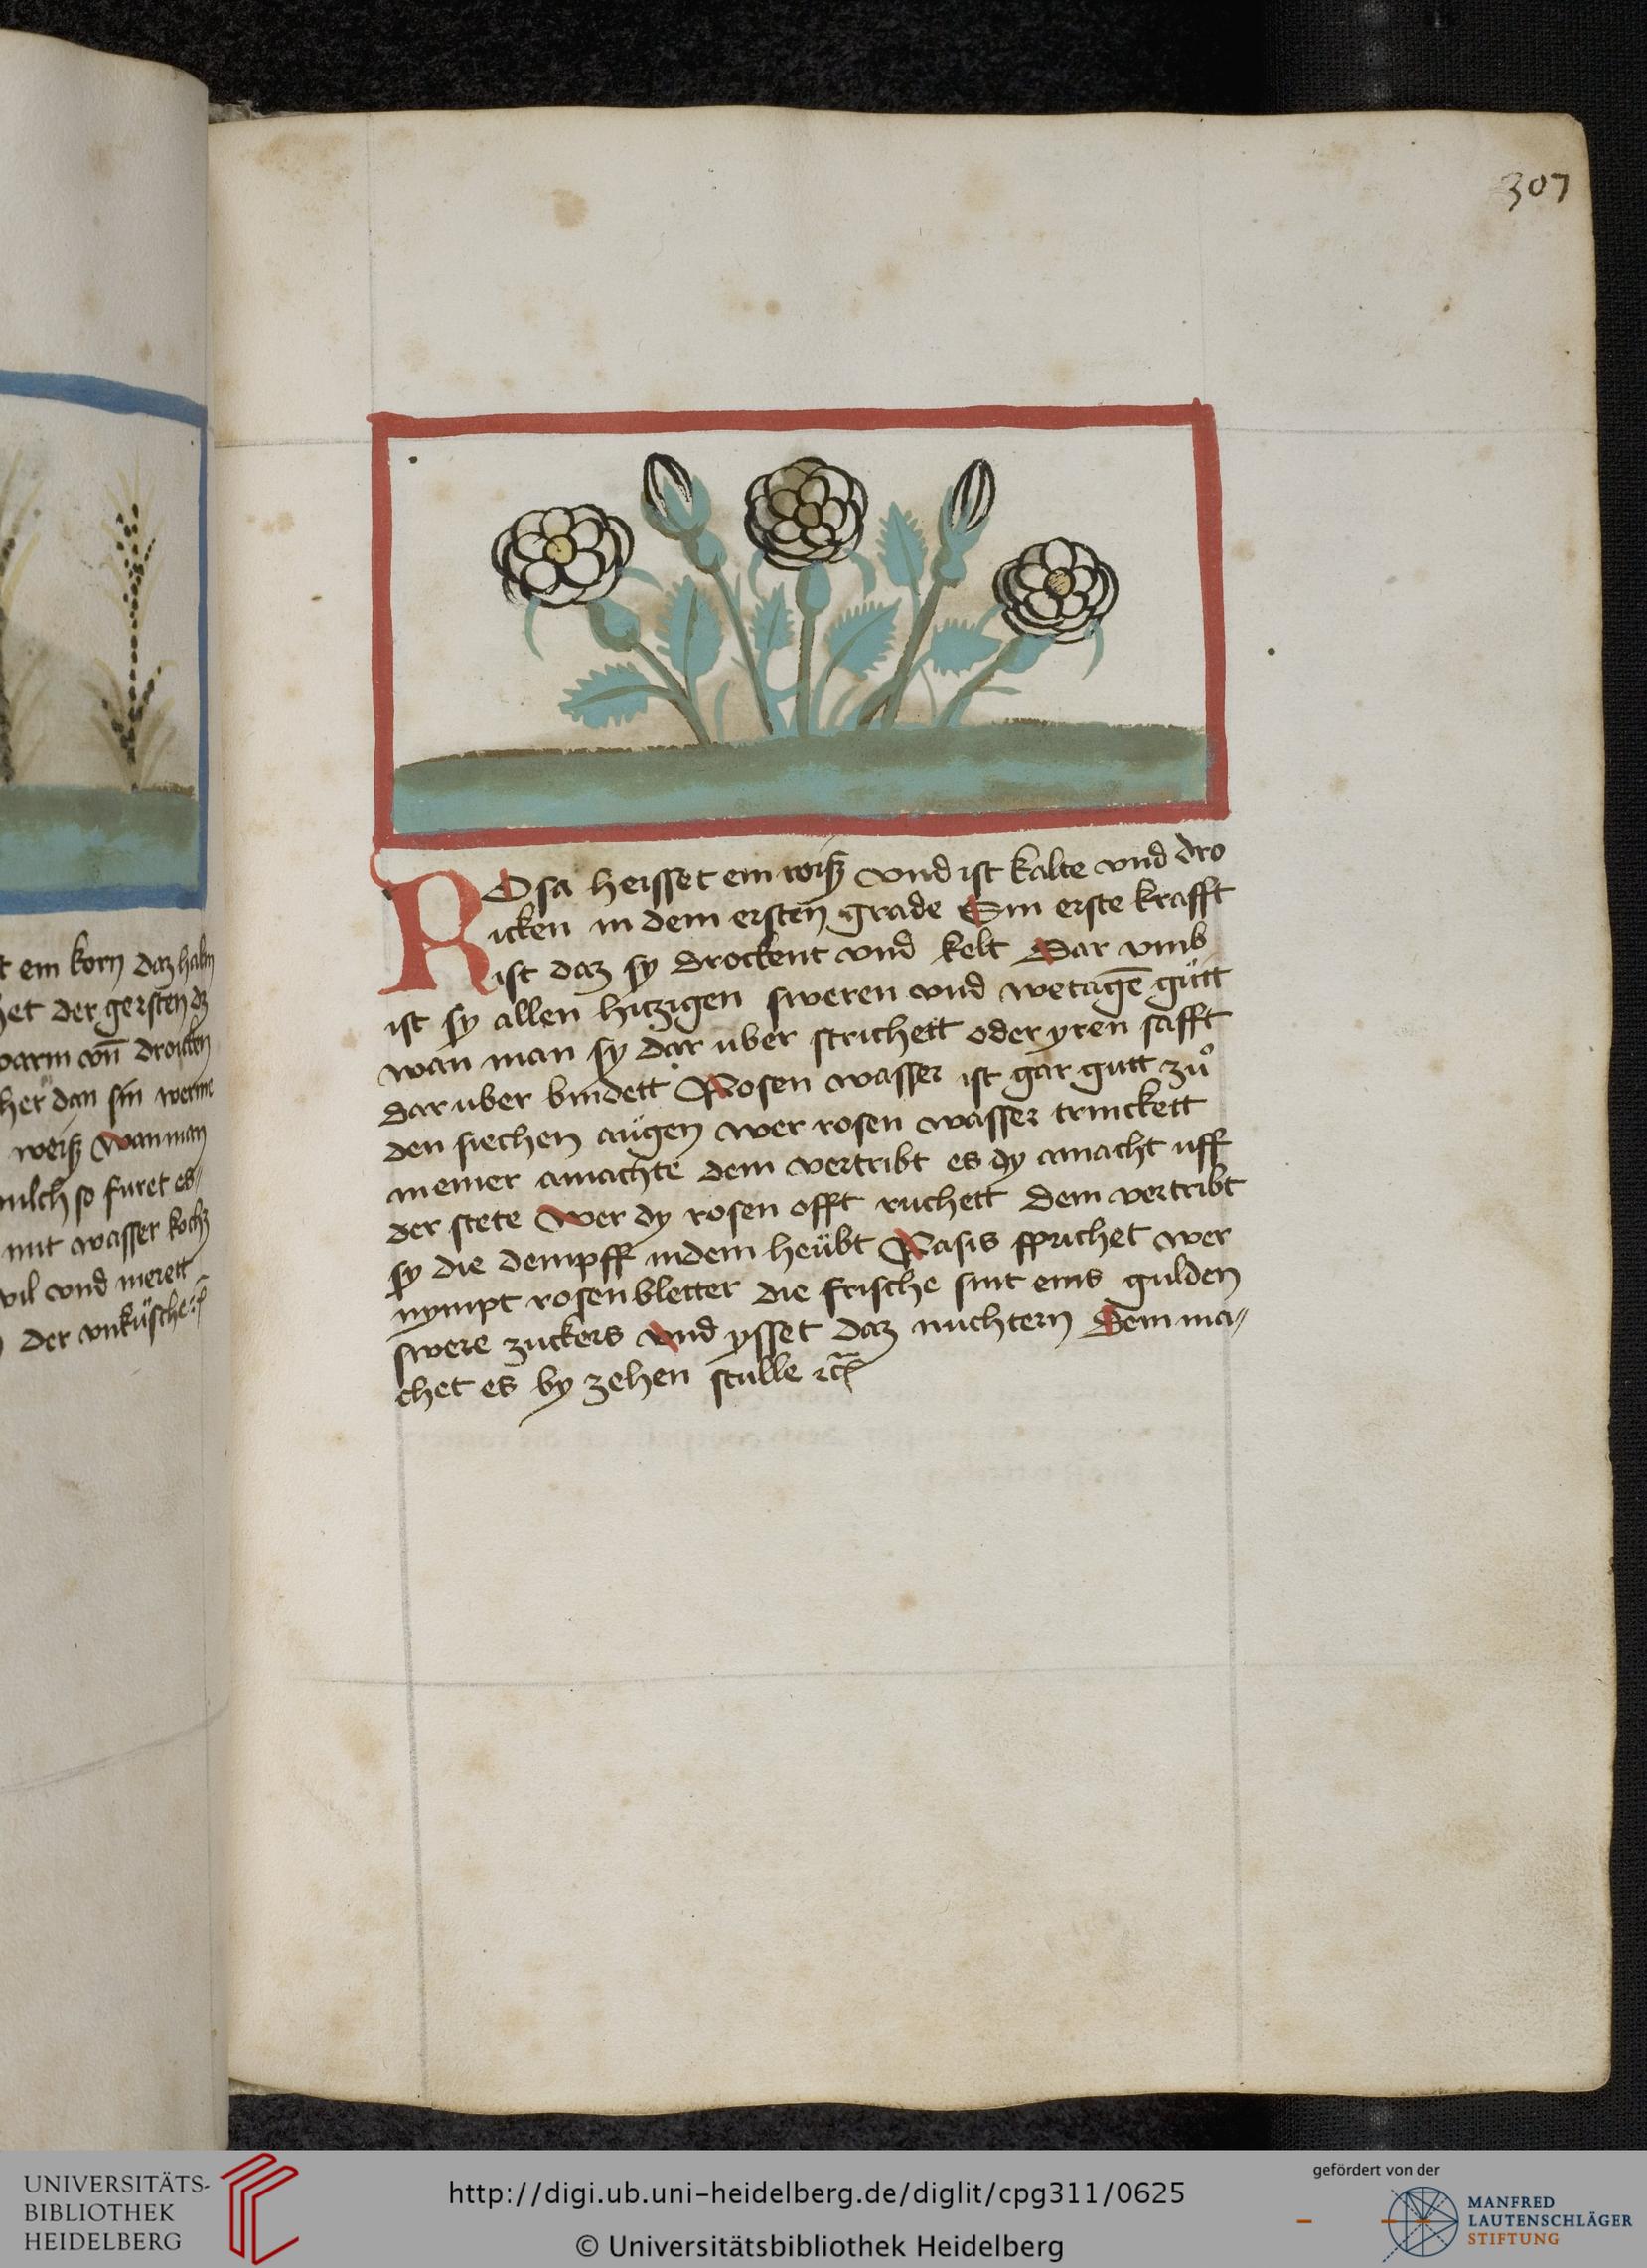 307
t ein korn daz halm
het der gersten dz
warm vn̄ drocken
her dan sin werme
weisz Wan man
milch so furet es
mit wasser kochz
vil vnd meret
der vnküsche
ROsa heisset ein roisz vnd ist kalte vnd dro
icken in dem ersten grade Sin erste krafft
ist daz sy drockent vnd kelt Dar vmb
ist sy allen hitzigen sweren vnd wetagē gütt
wan man sy dar uber strichett oder yren safft
dar uber bindett Rosen wasser ist gar gutt zů
den siechen augen wer rosen wasser trinckett
in einer amachte dem vertribt es dy amacht uff
der stete Wer dy rosen offt ruchett dem vertribt
sy die dempff in dem heübt Rasis sprichet wer
nympt rosen bletter die frische sint eins gulden
swere zuckers vnd ysset daz nuchtern Dem ma//
chet es by zehen stulle etc̄
UNIVERSITÄTS-
BIBLIOTHEK
HEIDELBERG
http://digi.ub.uni-heidelberg.de/diglit/cpg311/0625
© Universitätsbibliothek Heidelberg
gefördert von der
MANFRED
LAUTENSCHLÄGER
STIFTUNG